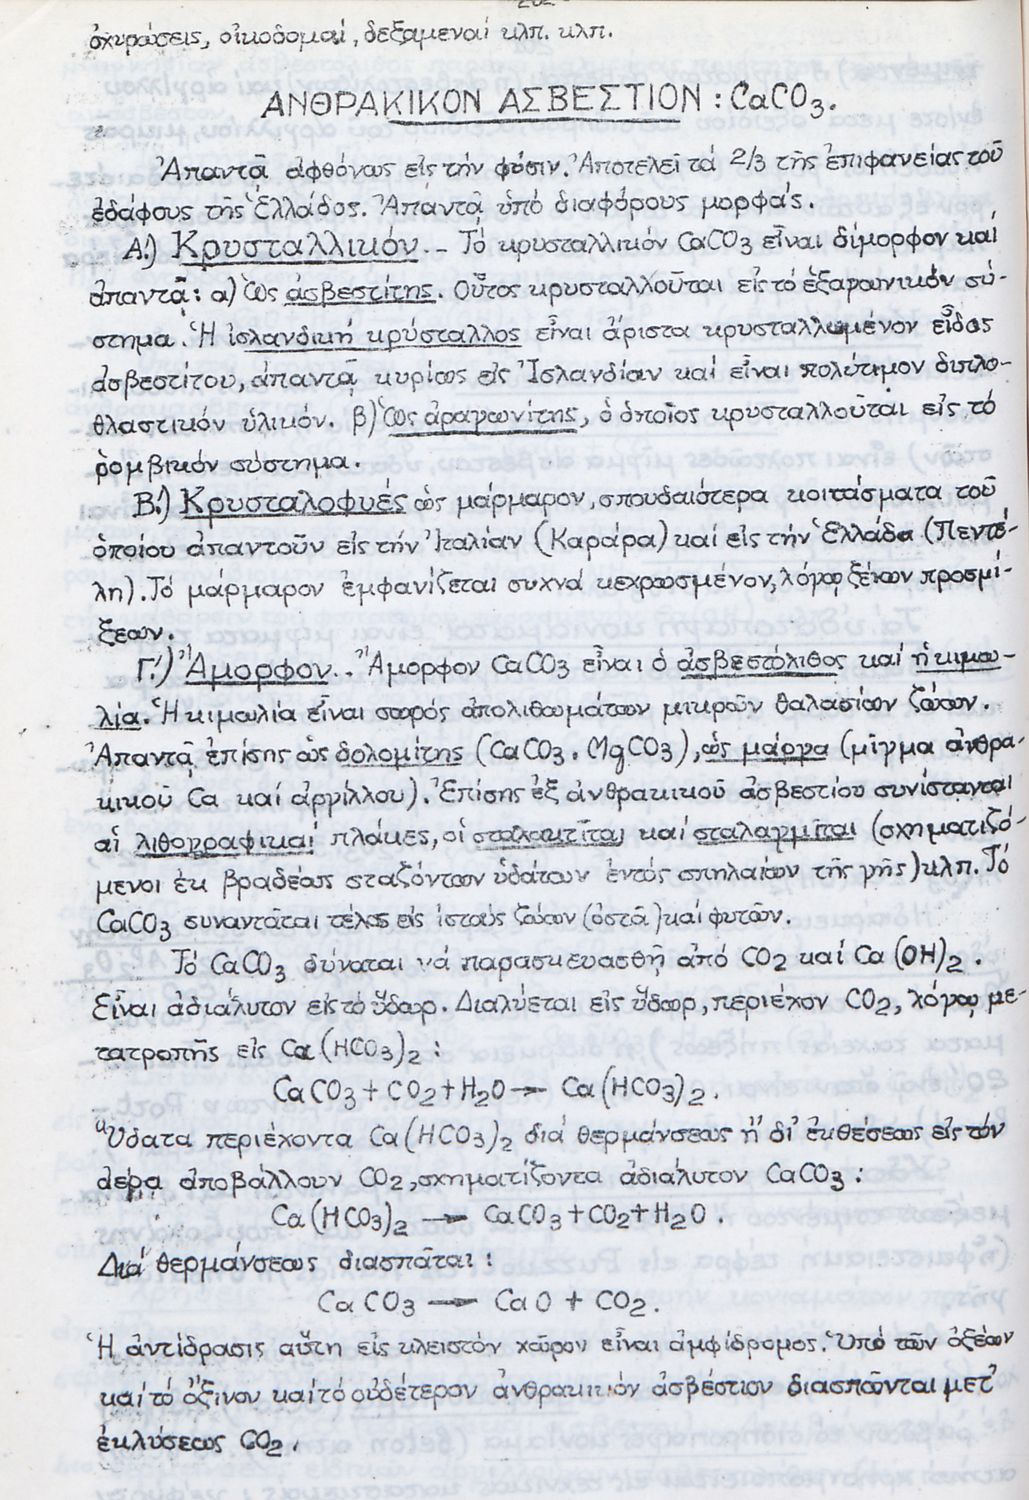 ὀχυρώσεις, οἰκοδομαί, δεξαμεναί κλπ. κλπ.
ΑΝΘΡΑΚΙΚΟΝ ΑΣΒΕΣΤΙΟΝ : CaCO3.
Ἀπαντᾷ ἀφθόνως εἰς τήν φύσιν. Ἀποτελεῖ τά 2/3 τῆς ἐπιφανείας τοῦ
ἐδάφους τῆς Ἑλλάδος. Ἀπαντᾷ ὑπό διαφόρους μορφάς.
Α.) Κρυσταλλικόν.- Τό κρυσταλλικόν CaCO3 εἶναι δίμορφον καί
ἀπαντᾷ: α) Ὡς ἀσβεστίτης. Οὗτος κρυσταλλοῦται εἰς τό ἑξαγωνικόν σύ-
στημα. Ἡ ἰσλανδική κρύσταλλος εἶναι ἄριστα κρυσταλλωμένον εἶδος
ἀσβεστίτου, ἀπαντᾷ κυρίως εἰς Ἰσλανδίαν καί εἶναι πολύτιμον διπλο-
θλαστικόν ὑλικόν. β) Ὡς ἀραγωνίτης, ὁ ὁποῖος κρυσταλλοῦται εἰς τό
ρομβικόν σύστημα.
Β.) Κρυσταλοφυές ὡς μάρμαρον, σπουδαιότερα κοιτάσματα τοῦ
ὁποίου ἀπαντοῦν εἰς τήν Ἰταλίαν (Καράρα) καί εἰς τήν Ἑλλάδα (Πεντέ-
λη). Τό μάρμαρον ἐμφανίζεται συχνά κεχρωσμένον, λόγῳ ξένων προσμί-
ξεων.
Γ.) Ἄμορφον.. Ἄμορφον CaCO3 εἶναι ὁ ἀσβεστόλιθος καί ἡ κιμω-
λία. Ἡ κιμωλία εἶναι σωρός ἀπολιθωμάτων μικρῶν θαλασίων ζώων.
Ἀπαντᾷ ἐπίσης ὡς δολομίτης (CaCO3 . MgCO3), ὡς μάργα (μῖγμα ἀνθρα-
κικοῦ Ca καί ἀργίλλου). Ἐπίσης ἐξ ἀνθρακικοῦ ἀσβεστίου συνίστανται
αἱ λιθογραφικαί πλάκες, οἱ σταλακτῖται καί σταλαγμῖται (σχηματιζό-
μενοι ἐκ βραδέως σταζόντων ὑδάτων ἐντός σπηλαίων τῆς γῆς) κλπ. Τό
CaCO3 συναντᾶται τέλος εἰς ἱστούς ζώων (ὀστᾶ) καί φυτῶν.
Τό CaCO3 δύναται νά παρασκευασθῇ ἀπό CO2 καί Ca(OH)2 .
Εἶναι ἀδιάλυτον εἰς τό ὕδωρ. Διαλύεται εἰς ὕδωρ, περιέχον CO2, λόγῳ με-
τατροπῆς εἰς Ca(HCO3)2 :
CaCO3 + CO2 + H2O → Ca(HCO3)2 .
Ὕδατα περιέχοντα Ca(HCO3)2 διά θερμάνσεως ἤ δι' ἐκθέσεως εἰς τόν
ἀέρα ἀποβάλλουν CO2, σχηματίζοντα ἀδιάλυτον CaCO3 :
Ca(HCO3)2 → CaCO3 + CO2 + H2O .
Διά θερμάνσεως διασπᾶται :
CaCO3 → CaO + CO2 .
Ἡ ἀντίδρασις αὕτη εἰς κλειστόν χῶρον εἶναι ἀμφίδρομος. Ὑπό τῶν ὀξέων
καί τό ὄξινον καί τό οὐδέτερον ἀνθρακικόν ἀσβέστιον διασπῶνται μετ'
ἐκλύσεως CO2 .